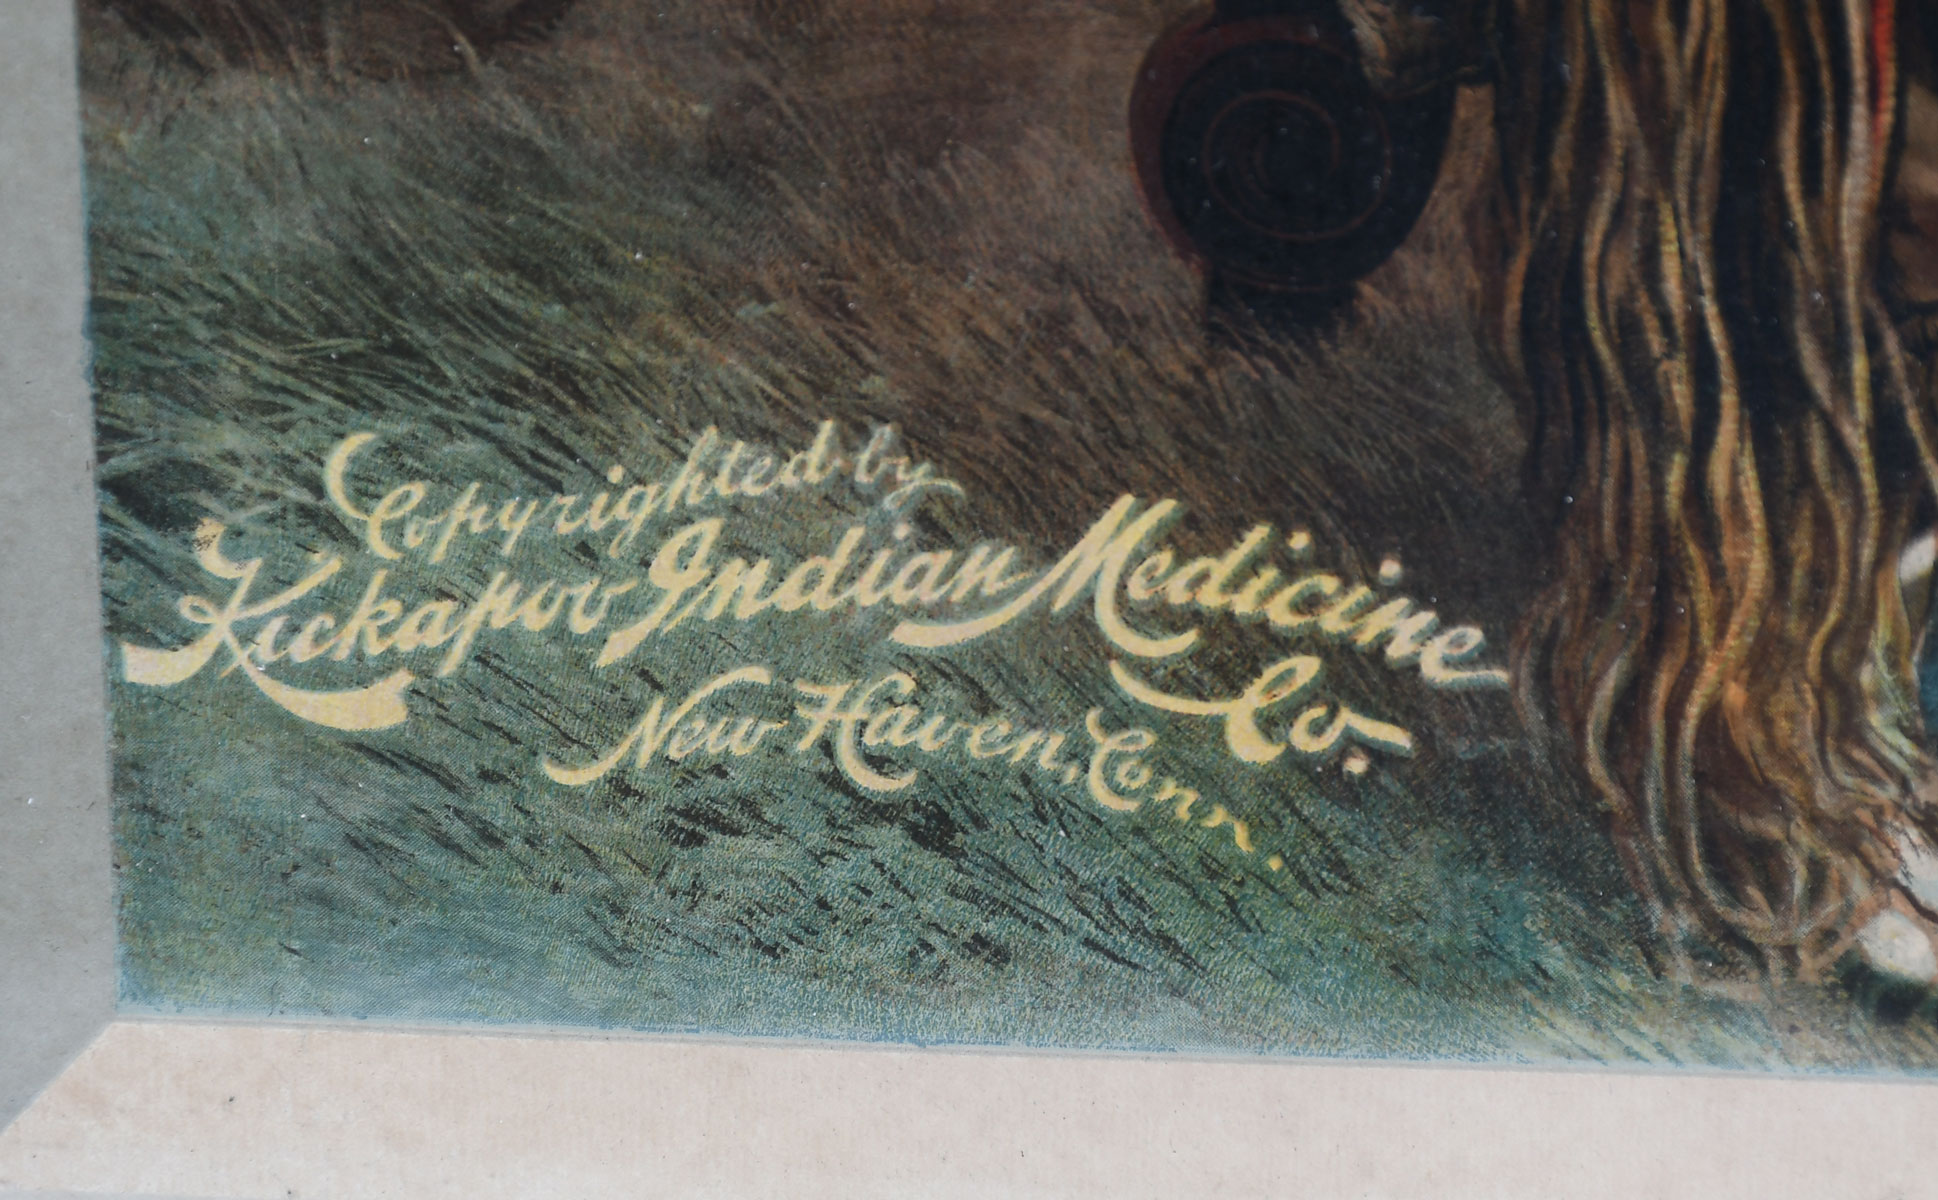 Copyrighted by
Kickapoo Indian Medicine
Co.
New Haven, Conn.